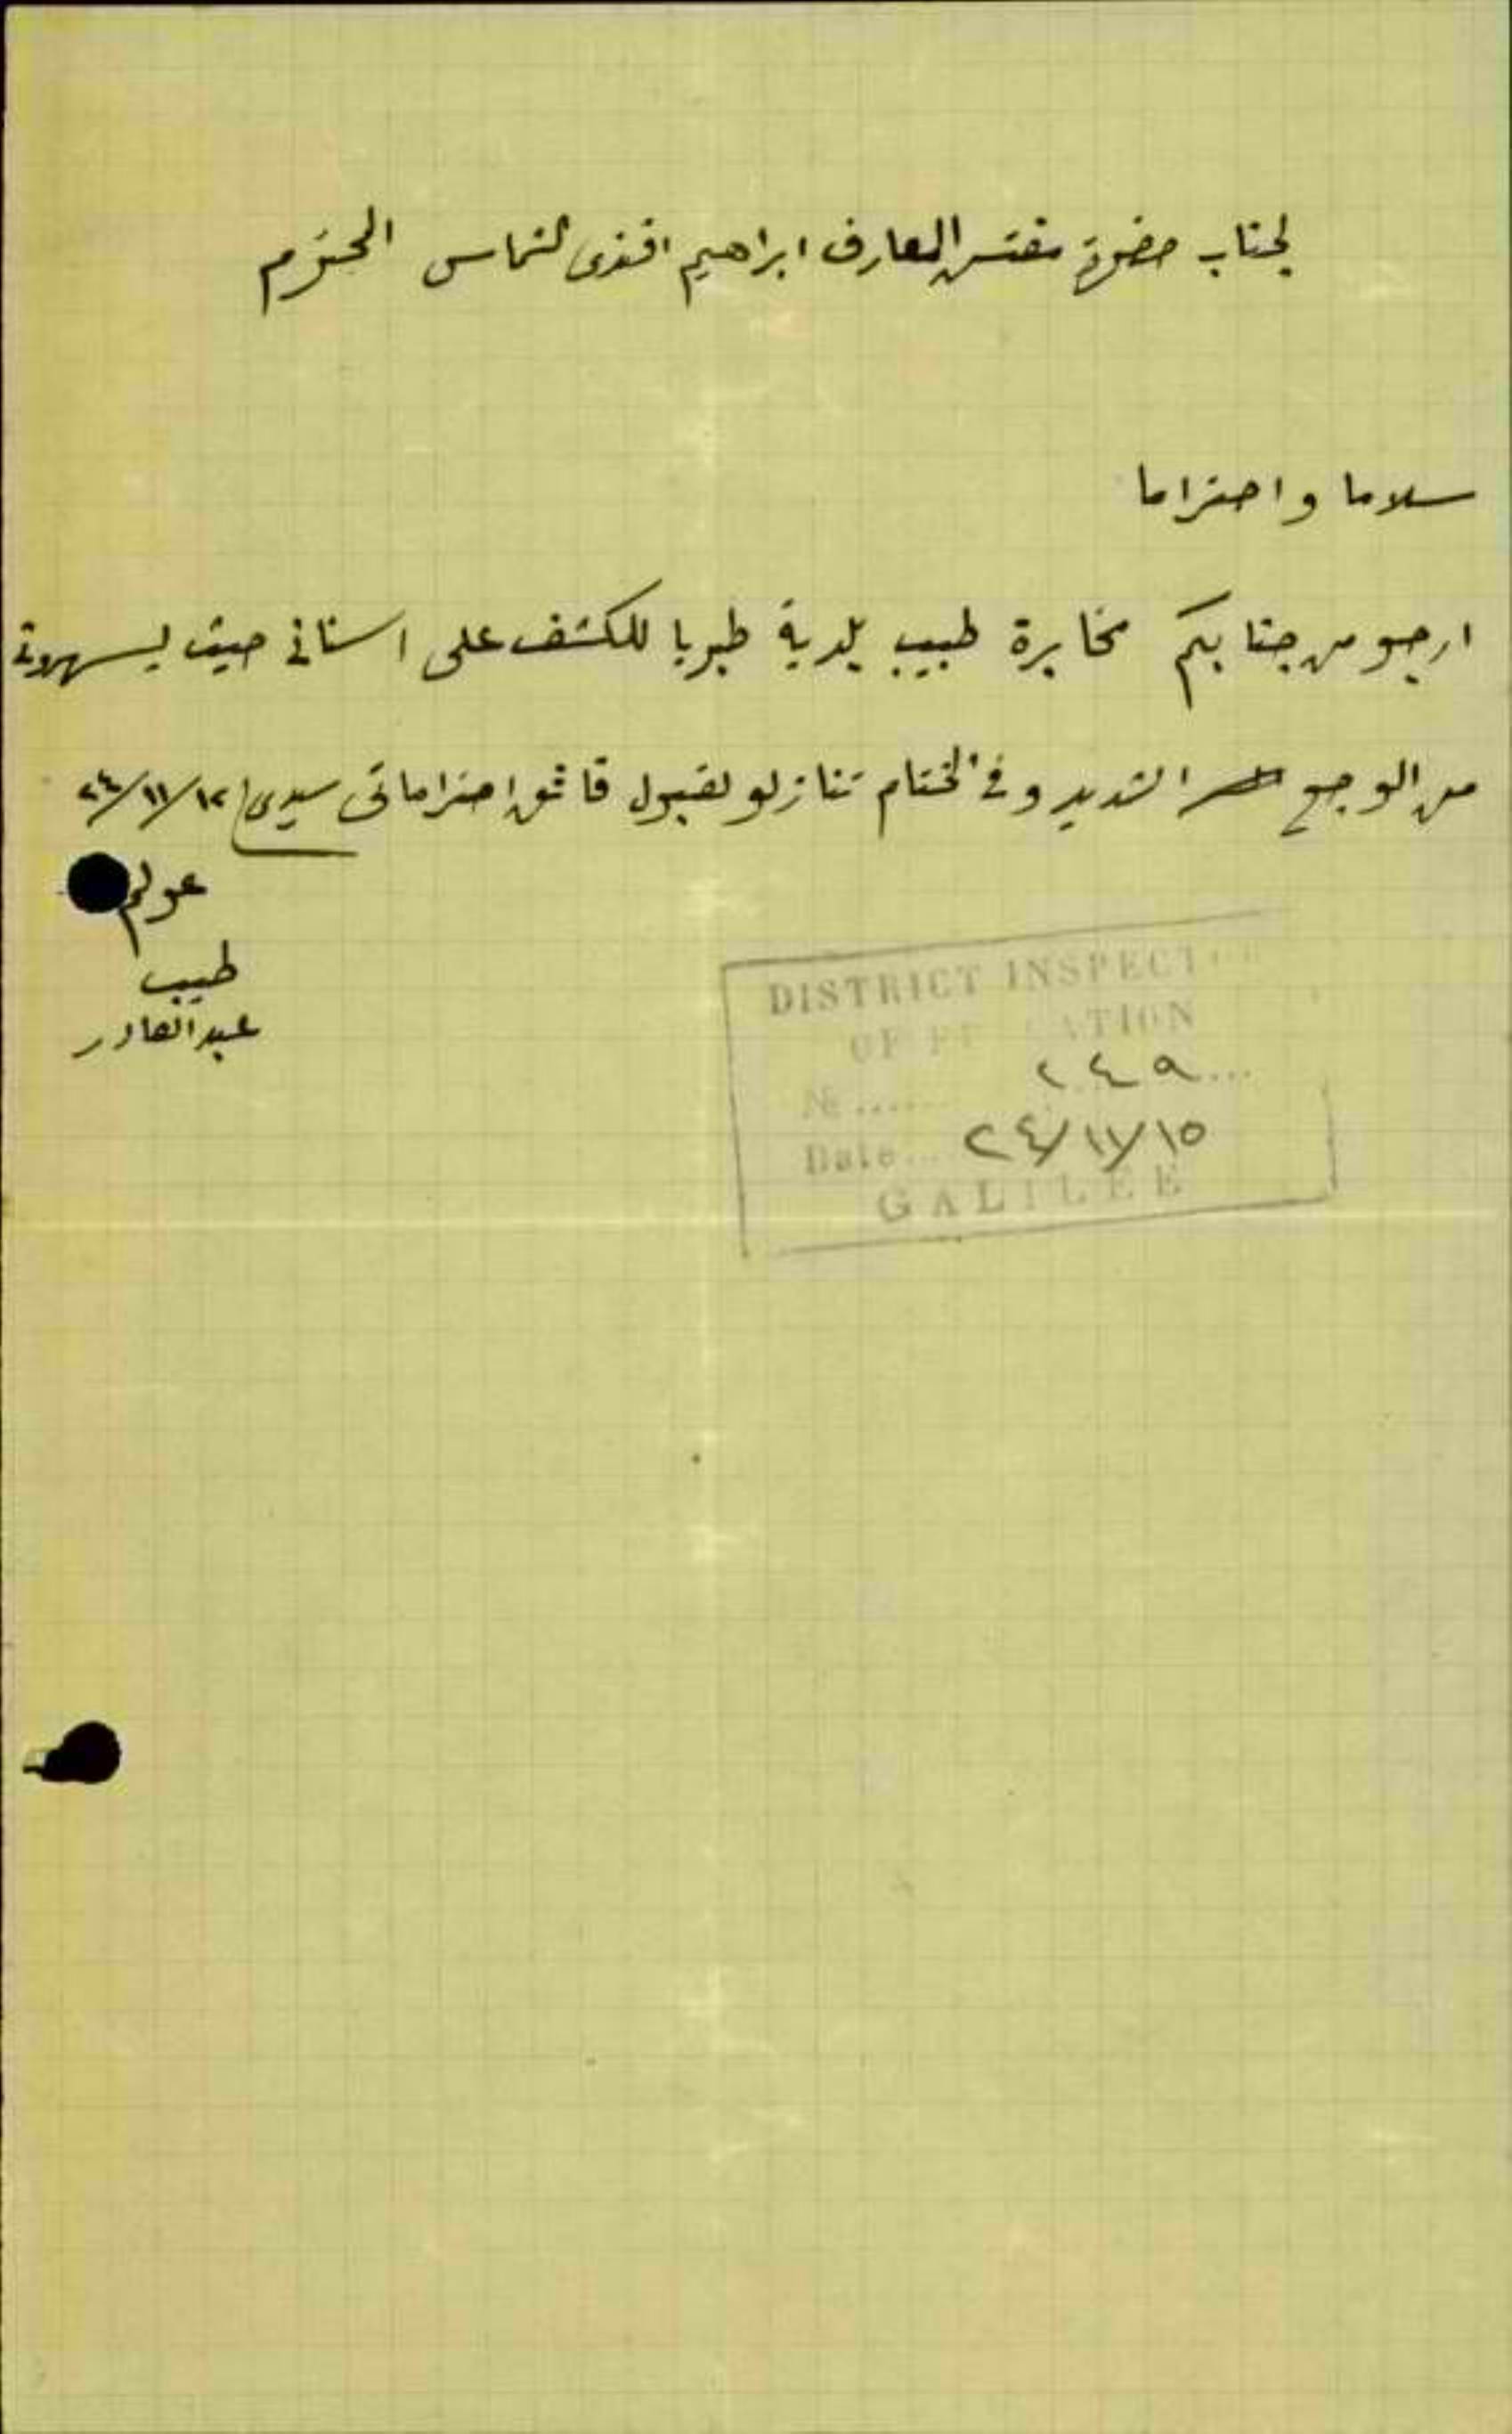 لجناب حضرة مفتش المعارف ابراهيم افندى شماس المحترم
سلاما و احتراما
ارجو من جنابكم مخابرة طبيب بلدية طبريا للكشف على اسنانى حيث
من الوجع الشديد وفى الختام تنازلو لقبول فائق احتراماتى سيدى ١٢/١١/٢٤
طيب
عبد القادر
DISTRICT INSPECTOR
OF EDUCATION
№ ...... ٢٤٩ ...
Date... ١٥/١١/٢٤
GALILEE